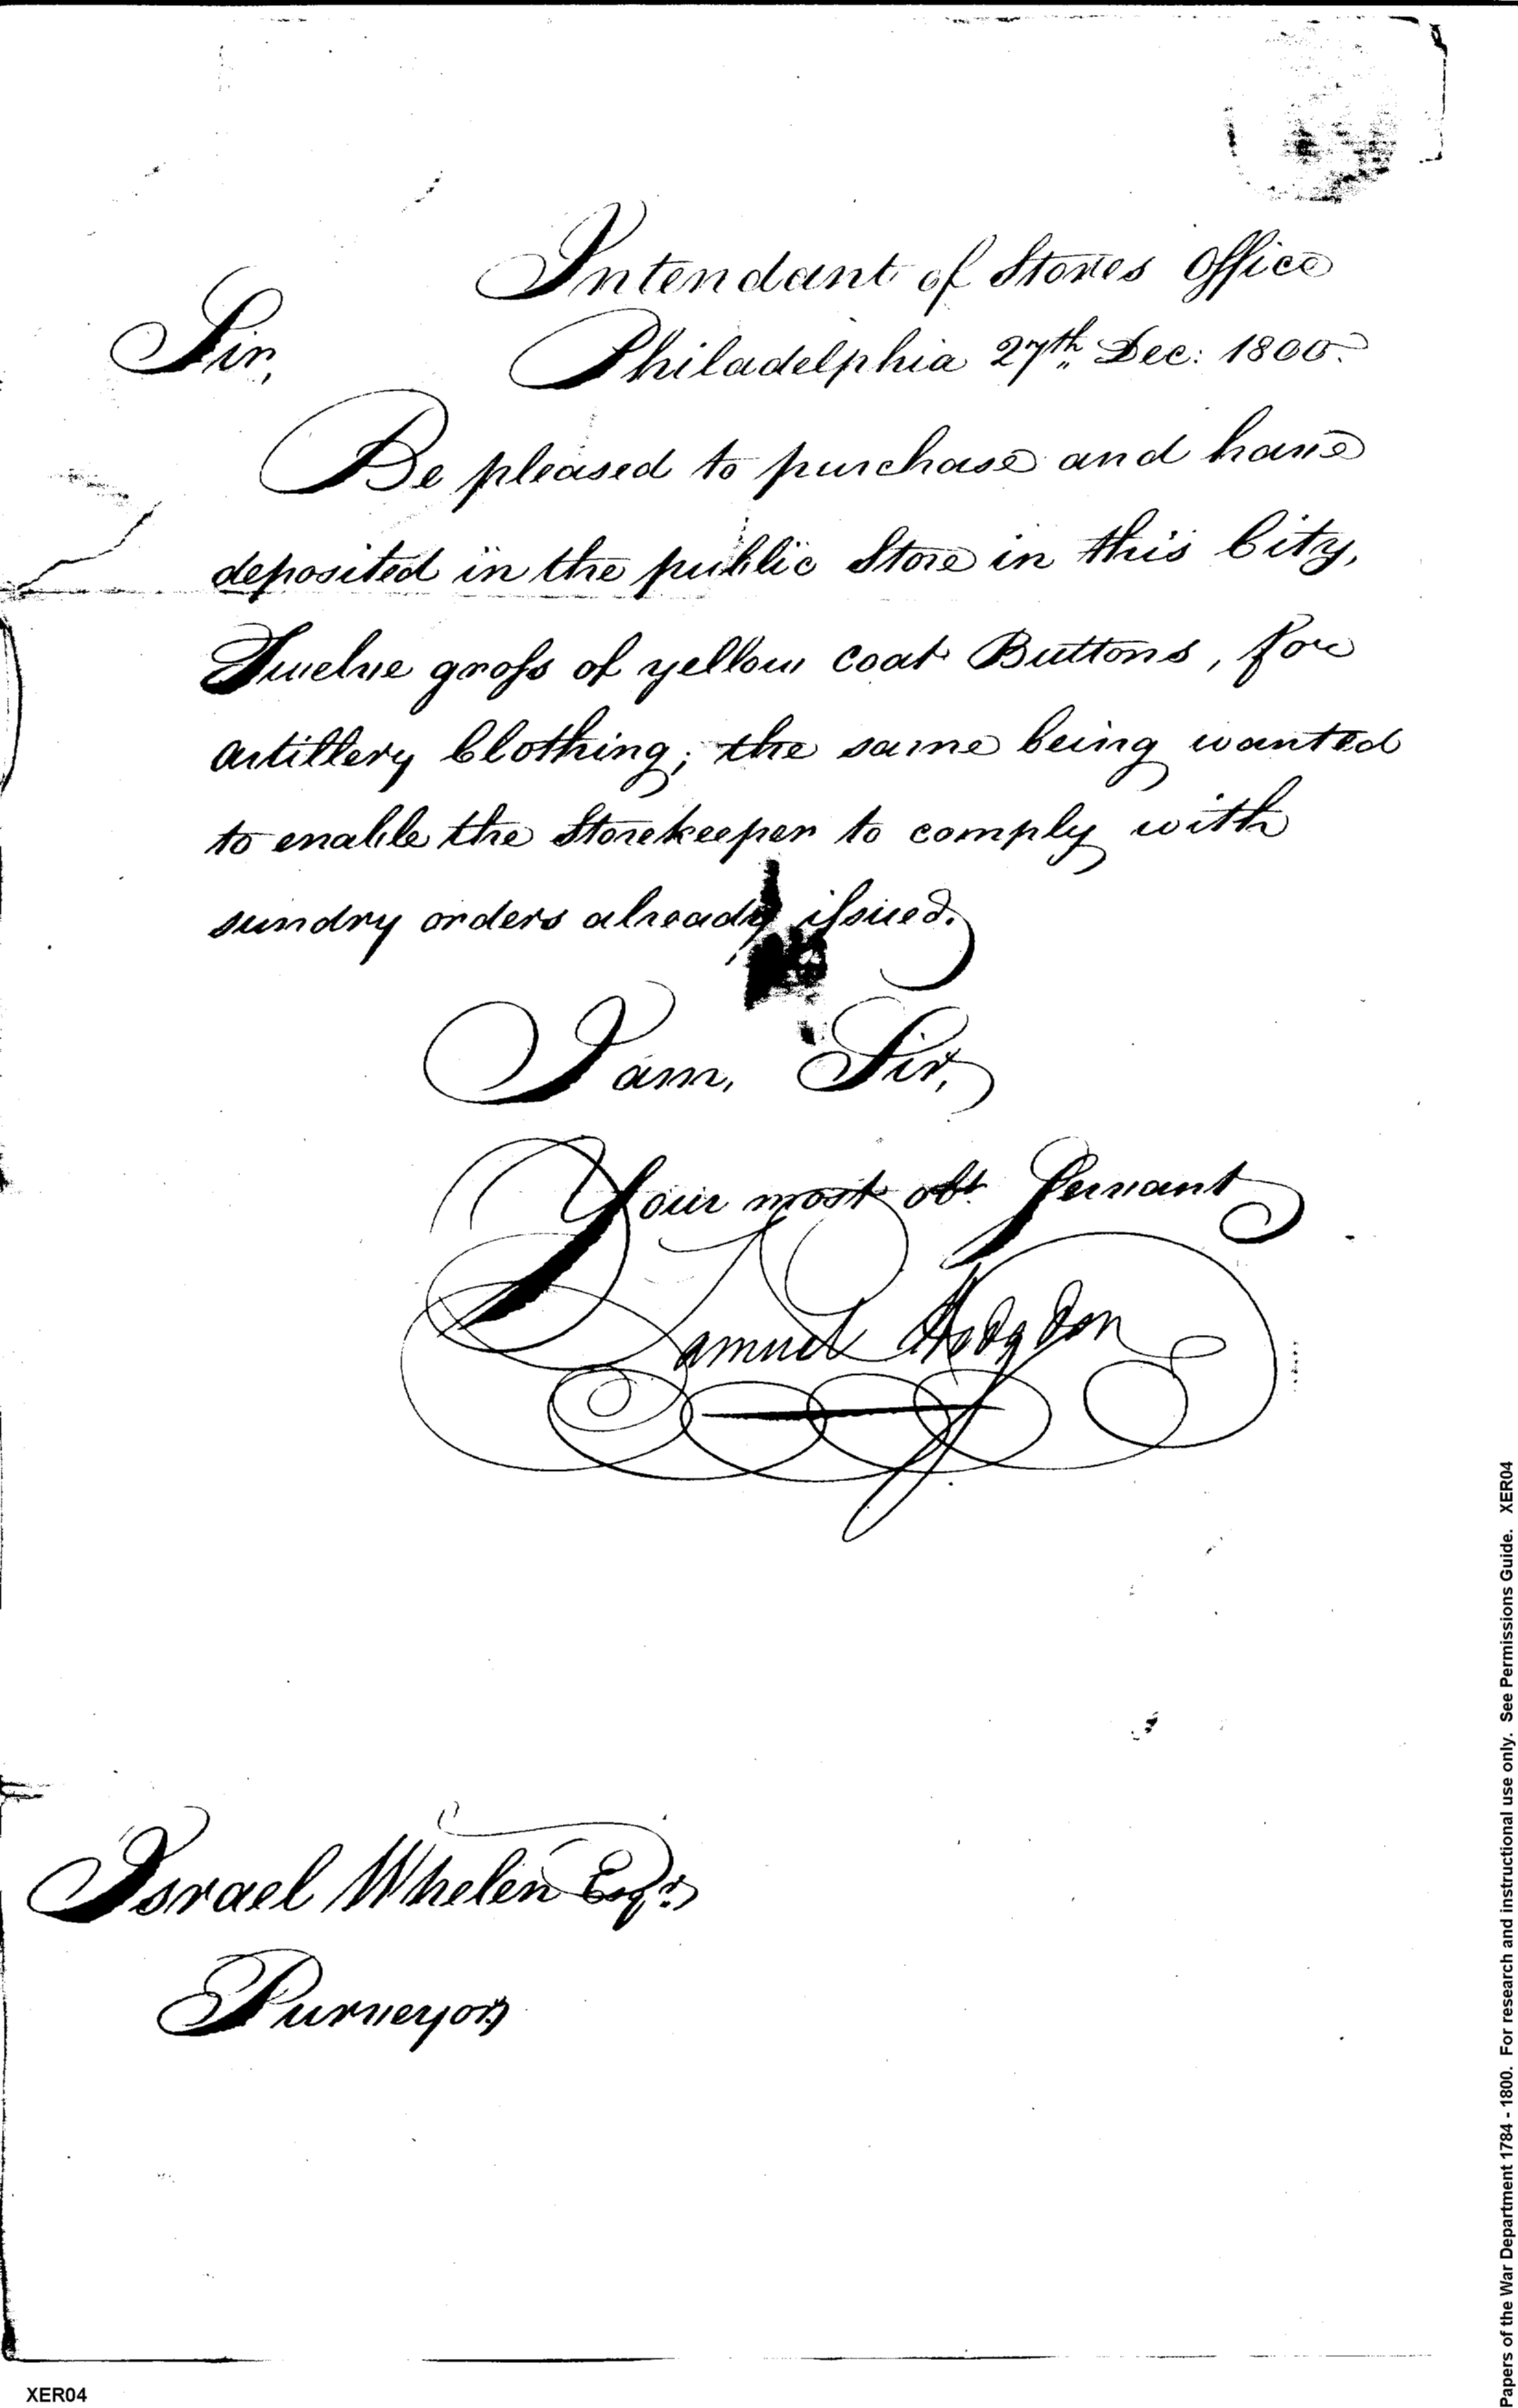 Intendant of Stores Office
Sir, Philadelphia 27th Dec: 1800.
Be pleased to purchase and have
deposited in the public Store in this City,
Twelve gross of yellow coat Buttons, for
artillery Clothing; the same being wanted
to enable the Storekeeper to comply with
sundry orders already issued.
I am, Sir,
Your most obt. Servant
Samuel Hodgdon
Israel Whelen Esqr.
Purveyor
Papers of the War Department 1784 - 1800. For research and instructional use only. See Permissions Guide. XER04
XER04